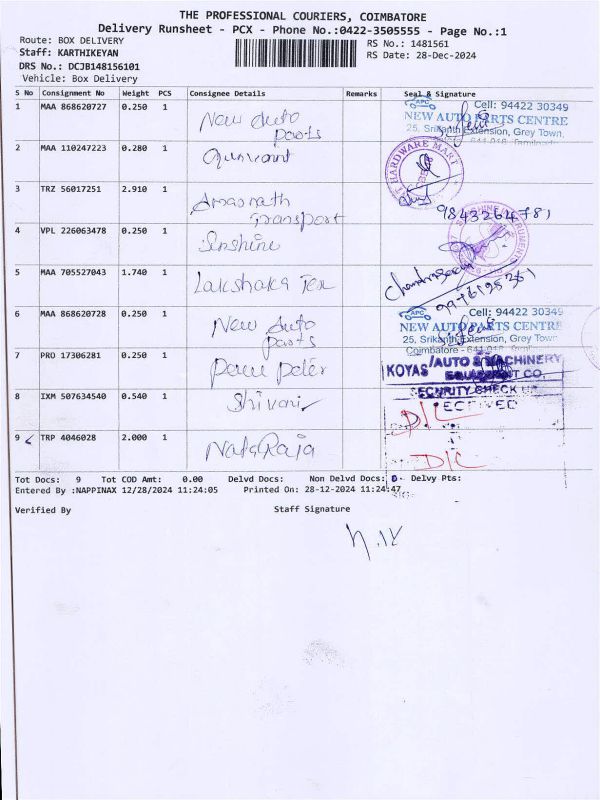 THE PROFESSIONAL COURIERS, COIMBATORE
Delivery Runsheet - PCX - Phone No.:0422-3505555 - Page No.:1
Route: BOX DELIVERY RS No.: 1481561
Staff: KARTHIKEYAN RS Date: 28-Dec-2024
DRS No.: DCJB148156101
Vehicle: Box Delivery
S No Consignment No Weight PCS Consignee Details Remarks Seal & Signature
1 MAA 868620727 0.250 1 New Auto parts
Cell: 94422 30349
NEW AUTO PARTS CENTRE
25, Srikanth Extension, Grey Town,
2 MAA 110247223 0.280 1
HARDWARE MART
3 TRZ 56017251 2.910 1 Amarnath Transport
9843264781
4 VPL 226063478 0.250 1 Sunshine
5 MAA 705527043 1.740 1 Lakshaka Tex
6 MAA 868620728 0.250 1 New Auto parts
APC Cell: 94422 30349
NEW AUTO PARTS CENTRE
25, Srikanth Extension, Grey Town
Coimbatore - 641 018
7 PRO 17306281 0.250 1
KOYAS AUTO & MACHINERY
EQUIPMENT CO.
SECURITY CHECK UP
RECEIVED
8 IXM 507634540 0.540 1 Shivani
D/C
9 TRP 4046028 2.000 1 NataRaja
D/C
Tot Docs: 9 Tot COD Amt: 0.00 Delvd Docs: Non Delvd Docs: 0 Delvy Pts:
Entered By :NAPPINAX 12/28/2024 11:24:05 Printed On: 28-12-2024 11:24:47
Verified By Staff Signature